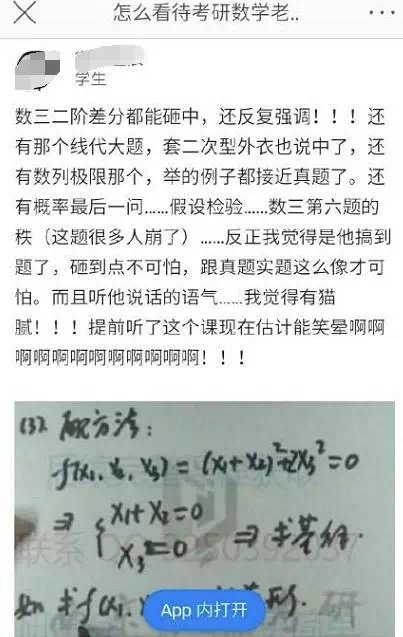 怎么看待考研数学老..
学生
数三二阶差分都能砸中，还反复强调！！！还
有那个线代大题，套二次型外衣也说中了，还
有数列极限那个，举的例子都接近真题了。还
有概率最后一问......假设检验......数三第六题的
秩（这题很多人崩了）......反正我觉得是他搞到
题了，砸到点不可怕，跟真题实题这么像才可
怕。而且听他说话的语气......我觉得有猫
腻！！！提前听了这个课现在估计能笑晕啊啊
啊啊啊啊啊啊啊啊啊啊！！！
(3) 配方法：
f(x₁, x₂, x₃) = (x₁+x₂)²+2x₃² = 0
⇒ { x₁+x₂=0
x₃=0 ⇒ 求基础
联系
如 求f(x₁,
App 内打开
研